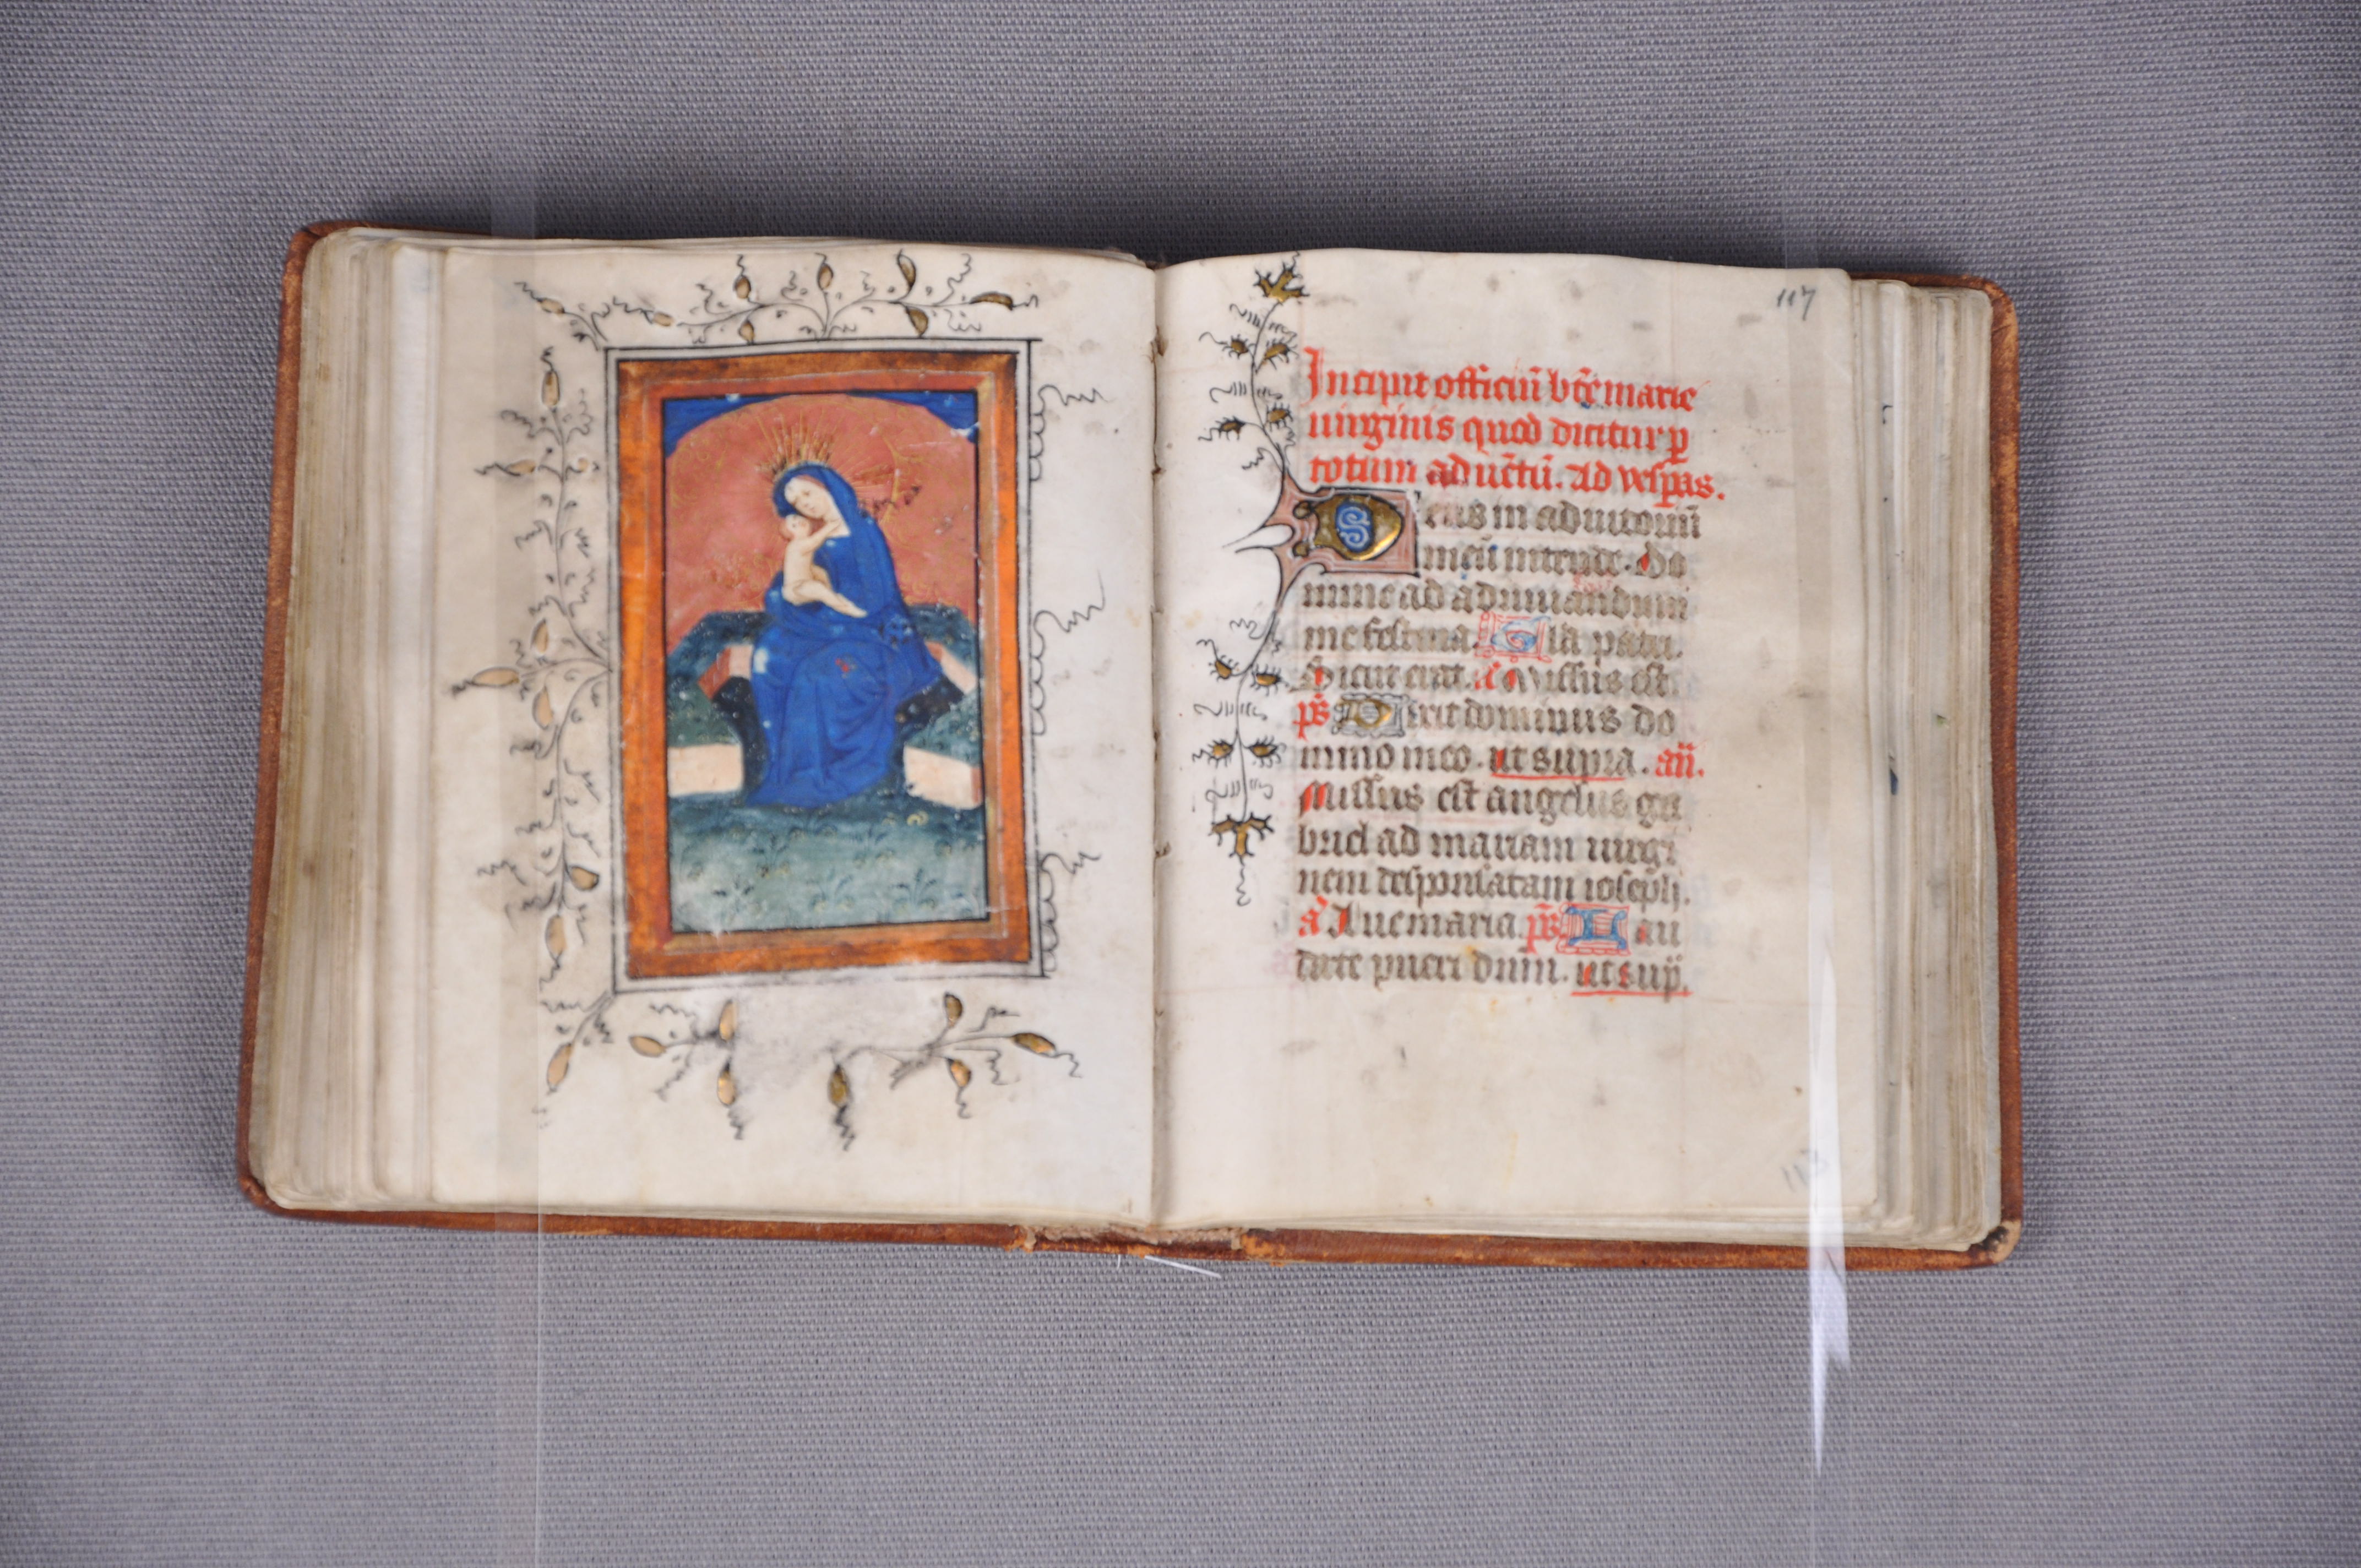 117
Incipit officiū bt̄e marie
uirginis quod dicitur ꝑ
totum aduētū. Ad vesꝑas.
Deus in adiutoriū
meū intende. Do
mine ad adiuuandum
me festina. Gl̄ia patri.
Sicut erat. a Missus est
ps̄ Dixit dominus do
mino meo. ut supra. an̄.
Missus est angelus ga
briel ad mariam uirgi
nem desponsatam ioseph.
a Aue maria ps̄ Lau
date pueri dnm. ut sup̄.